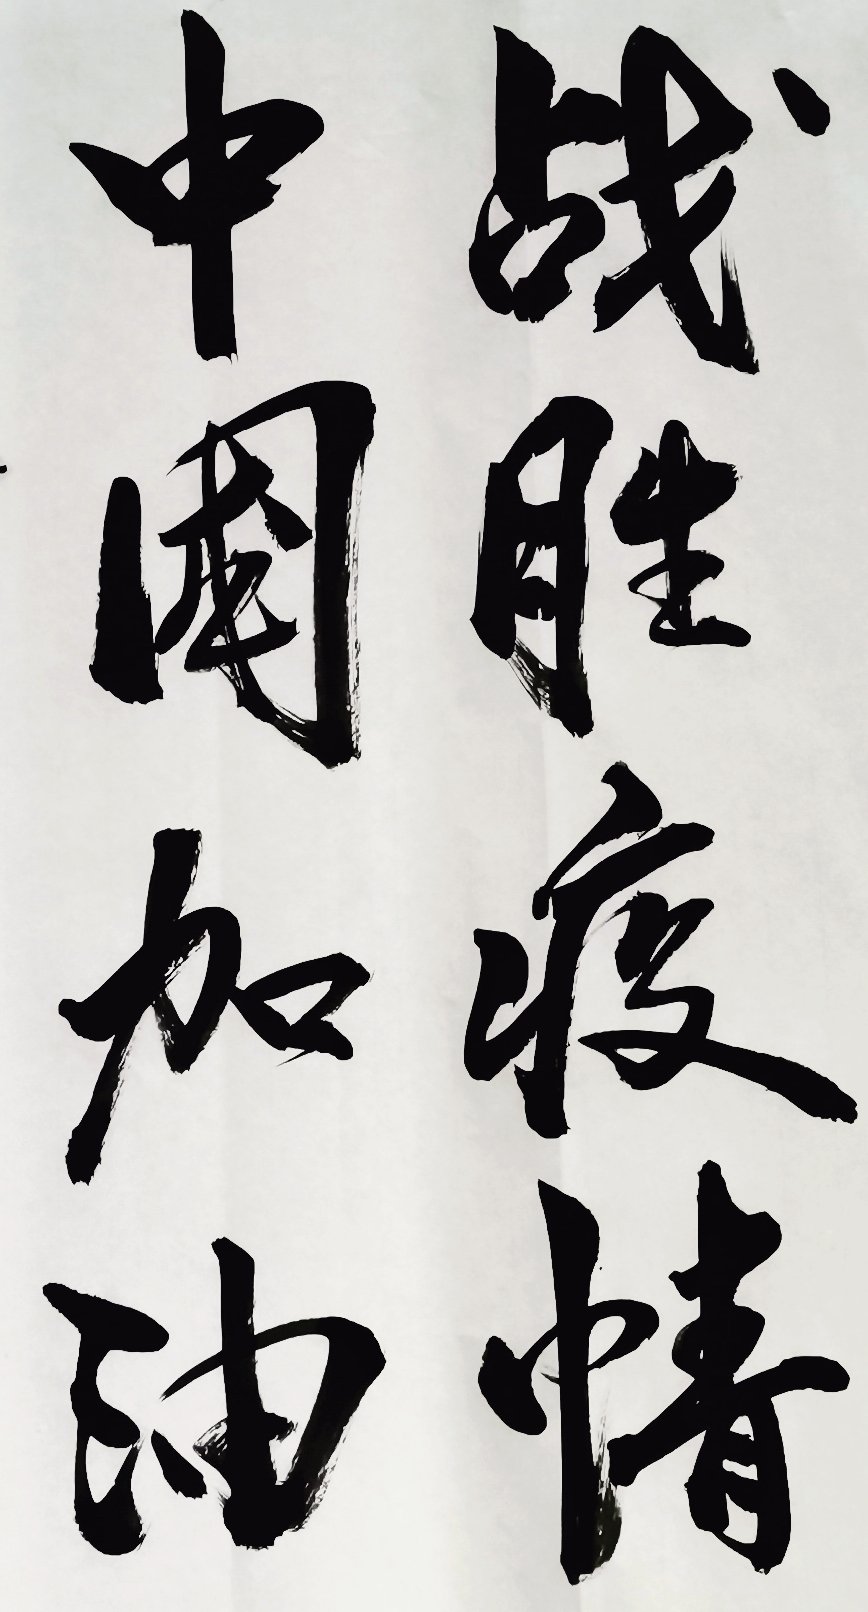 战胜疫情
中国加油